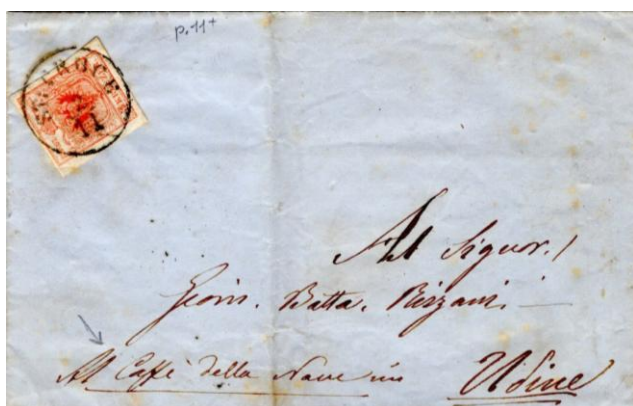 p. 11+
ST. CROCE
2
11
Al Signor.
Giov. Batta. Rizzani.
Al Caffè della Nave in Udine